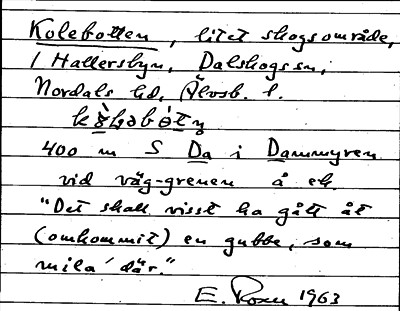 Kolebotten, litet skogsområde,
i Hallersbyn, Dalskogs sn,
Nordals hd, Älvsb. l.
400 m S Da i Dammmyren
vid väg-grenen å ek.
"Det skall visst ha gått åt
(omkommit) en gubbe, som
mila' där."
E. Rosen 1963